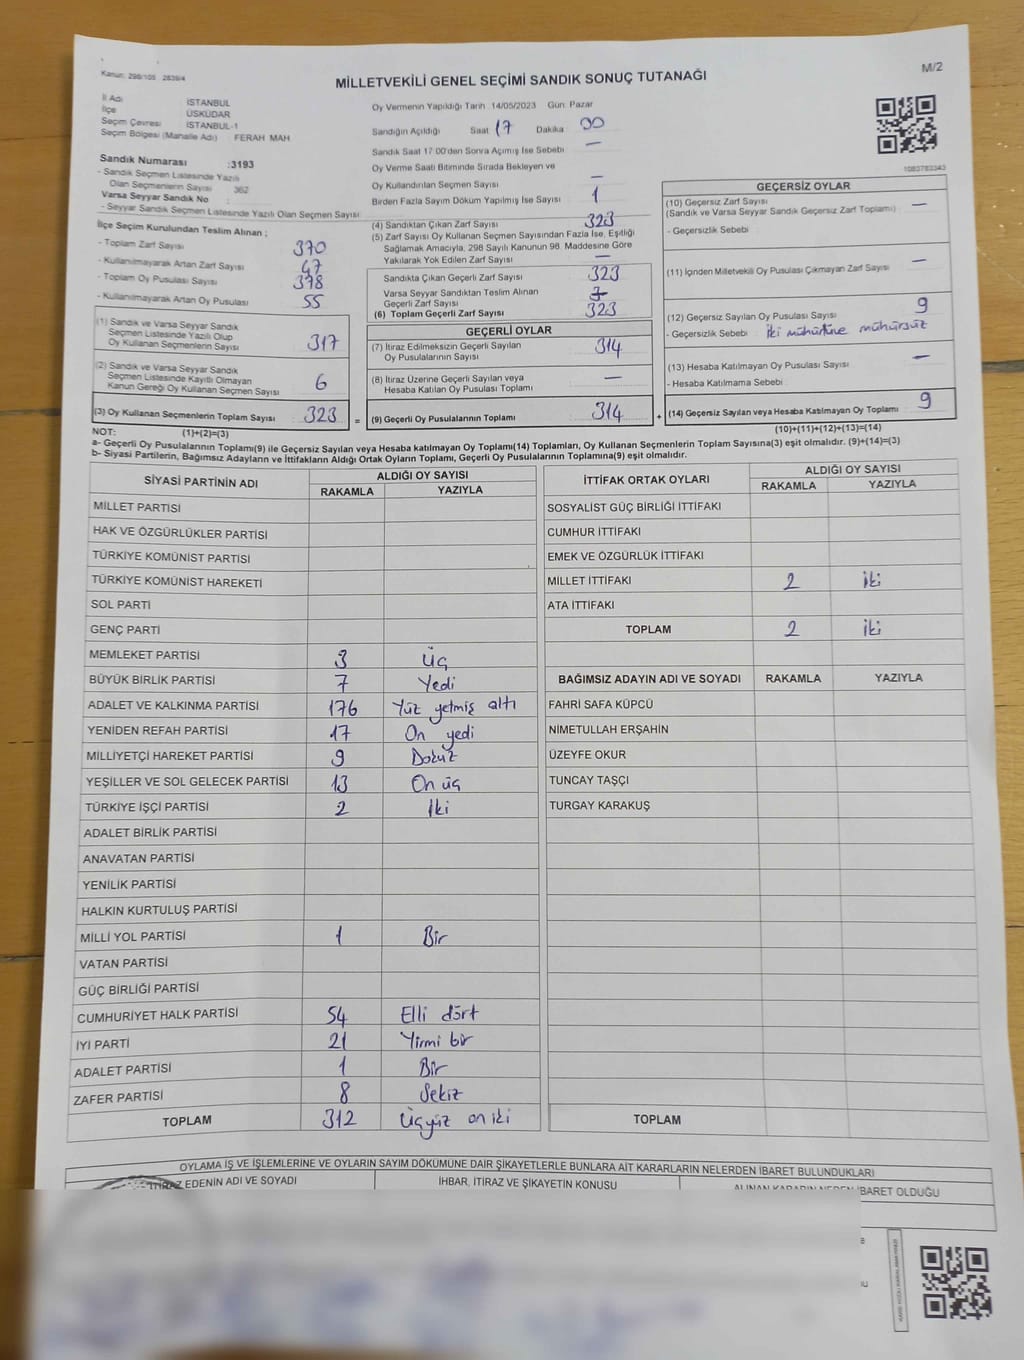 Kanun: 298/105 2839/4
MİLLETVEKİLİ GENEL SEÇİMİ SANDIK SONUÇ TUTANAĞI
M/2
İl Adı İSTANBUL
İlçe ÜSKÜDAR
Seçim Çevresi İSTANBUL-1
Seçim Bölgesi (Mahalle Adı) FERAH MAH
Oy Vermenin Yapıldığı Tarih 14/05/2023 Gün: Pazar
Sandığın Açıldığı Saat 17 Dakika 00
Sandık Saat 17:00'den Sonra Açımış İse Sebebi —
Oy Verme Saati Bitiminde Sırada Bekleyen ve
Oy Kullandırılan Seçmen Sayısı —
Birden Fazla Sayım Döküm Yapılmış İse Sayısı 1
1083783343
Sandık Numarası :3193
- Sandık Seçmen Listesinde Yazılı
Olan Seçmenlerin Sayısı 362
Varsa Seyyar Sandık No :
- Seyyar Sandık Seçmen Listesinde Yazılı Olan Seçmen Sayısı
İlçe Seçim Kurulundan Teslim Alınan ;
- Toplam Zarf Sayısı 370
- Kullanılmayarak Artan Zarf Sayısı 47
- Toplam Oy Pusulası Sayısı 378
- Kullanılmayarak Artan Oy Pusulası 55
(1) Sandık ve Varsa Seyyar Sandık
Seçmen Listesinde Yazılı Olup
Oy Kullanan Seçmenlerin Sayısı 317
(2) Sandık ve Varsa Seyyar Sandık
Seçmen Listesinde Kayıtlı Olmayan
Kanun Gereği Oy Kullanan Seçmen Sayısı 6
(3) Oy Kullanan Seçmenlerin Toplam Sayısı : 323 =
(4) Sandıktan Çıkan Zarf Sayısı 323
(5) Zarf Sayısı Oy Kullanan Seçmen Sayısından Fazla İse, Eşitliği
Sağlamak Amacıyla, 298 Sayılı Kanunun 98. Maddesine Göre
Yakılarak Yok Edilen Zarf Sayısı —
Sandıkta Çıkan Geçerli Zarf Sayısı 323
Varsa Seyyar Sandıktan Teslim Alınan
Geçerli Zarf Sayısı
(6) Toplam Geçerli Zarf Sayısı 323
GEÇERLİ OYLAR
(7) İtiraz Edilmeksizin Geçerli Sayılan
Oy Pusulalarının Sayısı 314
(8) İtiraz Üzerine Geçerli Sayılan veya
Hesaba Katılan Oy Pusulası Toplamı —
(9) Geçerli Oy Pusulalarının Toplamı : 314 +
GEÇERSİZ OYLAR
(10) Geçersiz Zarf Sayısı —
(Sandık ve Varsa Seyyar Sandık Geçersiz Zarf Toplamı)
- Geçersizlik Sebebi
(11) İçinden Milletvekili Oy Pusulası Çıkmayan Zarf Sayısı —
(12) Geçersiz Sayılan Oy Pusulası Sayısı 9
- Geçersizlik Sebebi İki mühürsüz
(13) Hesaba Katılmayan Oy Pusulası Sayısı —
- Hesaba Katılmama Sebebi
(14) Geçersiz Sayılan veya Hesaba Katılmayan Oy Toplamı 9
NOT: (1)+(2)=(3)
(10)+(11)+(12)+(13)=(14)
a- Geçerli Oy Pusulalarının Toplamı(9) ile Geçersiz Sayılan veya Hesaba katılmayan Oy Toplamı(14) Toplamları, Oy Kullanan Seçmenlerin Toplam Sayısına(3) eşit olmalıdır. (9)+(14)=(3)
b- Siyasi Partilerin, Bağımsız Adayların ve İttifakların Aldığı Ortak Oyların Toplamı, Geçerli Oy Pusulalarının Toplamına(9) eşit olmalıdır.
SİYASİ PARTİNİN ADI ALDIĞI OY SAYISI
RAKAMLA YAZIYLA
MİLLET PARTİSİ
HAK VE ÖZGÜRLÜKLER PARTİSİ
TÜRKİYE KOMÜNİST PARTİSİ
TÜRKİYE KOMÜNİST HAREKETİ
SOL PARTİ
GENÇ PARTİ
MEMLEKET PARTİSİ 3 Üç
BÜYÜK BİRLİK PARTİSİ 7 Yedi
ADALET VE KALKINMA PARTİSİ 176 Yüz yetmiş altı
YENİDEN REFAH PARTİSİ 17 On yedi
MİLLİYETÇİ HAREKET PARTİSİ 9 Dokuz
YEŞİLLER VE SOL GELECEK PARTİSİ 13 On üç
TÜRKİYE İŞÇİ PARTİSİ 2 İki
ADALET BİRLİK PARTİSİ
ANAVATAN PARTİSİ
YENİLİK PARTİSİ
HALKIN KURTULUŞ PARTİSİ
MİLLİ YOL PARTİSİ 1 Bir
VATAN PARTİSİ
GÜÇ BİRLİĞİ PARTİSİ
CUMHURİYET HALK PARTİSİ 54 Elli dört
İYİ PARTİ 21 Yirmi bir
ADALET PARTİSİ 1 Bir
ZAFER PARTİSİ 8 Sekiz
TOPLAM 312 Üçyüz on iki
İTTİFAK ORTAK OYLARI ALDIĞI OY SAYISI
RAKAMLA YAZIYLA
SOSYALİST GÜÇ BİRLİĞİ İTTİFAKI
CUMHUR İTTİFAKI
EMEK VE ÖZGÜRLÜK İTTİFAKI
MİLLET İTTİFAKI 2 İki
ATA İTTİFAKI
TOPLAM 2 İki
BAĞIMSIZ ADAYIN ADI VE SOYADI RAKAMLA YAZIYLA
FAHRİ SAFA KÜPCÜ
NİMETULLAH ERŞAHİN
ÜZEYFE OKUR
TUNCAY TAŞÇI
TURGAY KARAKUŞ
TOPLAM
OYLAMA İŞ VE İŞLEMLERİNE VE OYLARIN SAYIM DÖKÜMÜNE DAİR ŞİKAYETLERLE BUNLARA AİT KARARLARIN NELERDEN İBARET BULUNDUKLARI
İTİRAZ EDENİN ADI VE SOYADI İHBAR, İTİRAZ VE ŞİKAYETİN KONUSU ALINAN KARARIN NEDEN İBARET OLDUĞU